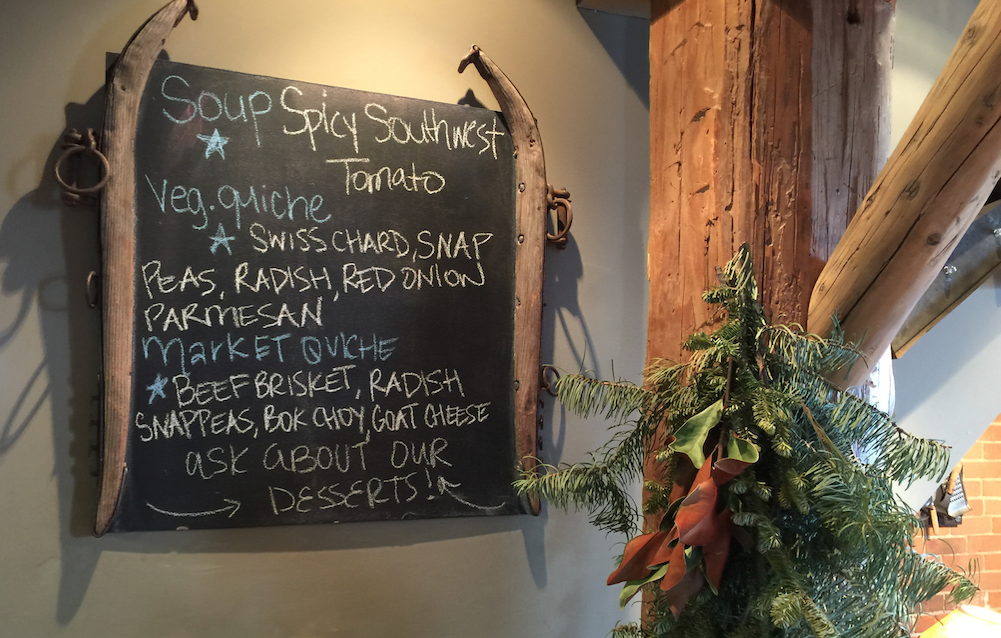 Soup Spicy Southwest
Tomato
Veg. quiche
SWISS CHARD, SNAP
PEAS, RADISH, RED ONION
PARMESAN
MARKET QUICHE
BEEF BRISKET, RADISH
SNAPPEAS, BOK CHOY, GOAT CHEESE
ASK ABOUT OUR
DESSERTS!